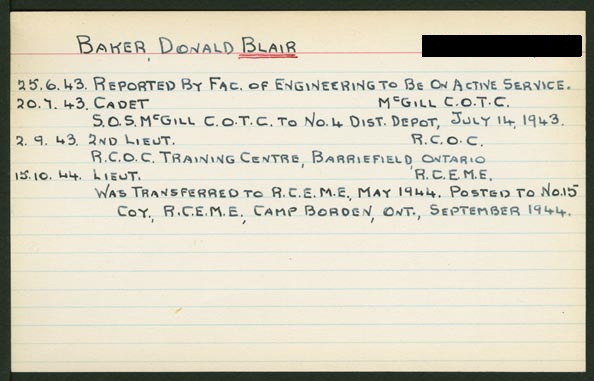 BAKER, DONALD BLAIR
25.6.43. REPORTED BY FAC. OF ENGINEERING TO BE ON ACTIVE SERVICE.
20.7.43. CADET McGILL C.O.T.C.
S.O.S. McGILL C.O.T.C. TO No.4 DIST. DEPOT, JULY 14, 1943.
2.9.43. 2ND LIEUT. R.C.O.C.
R.C.O.C. TRAINING CENTRE, BARRIEFIELD, ONTARIO
15.10.44. LIEUT. R.C.E.M.E.
WAS TRANSFERRED TO R.C.E.M.E., MAY 1944. POSTED TO No.15
COY., R.C.E.M.E., CAMP BORDEN, ONT., SEPTEMBER 1944.